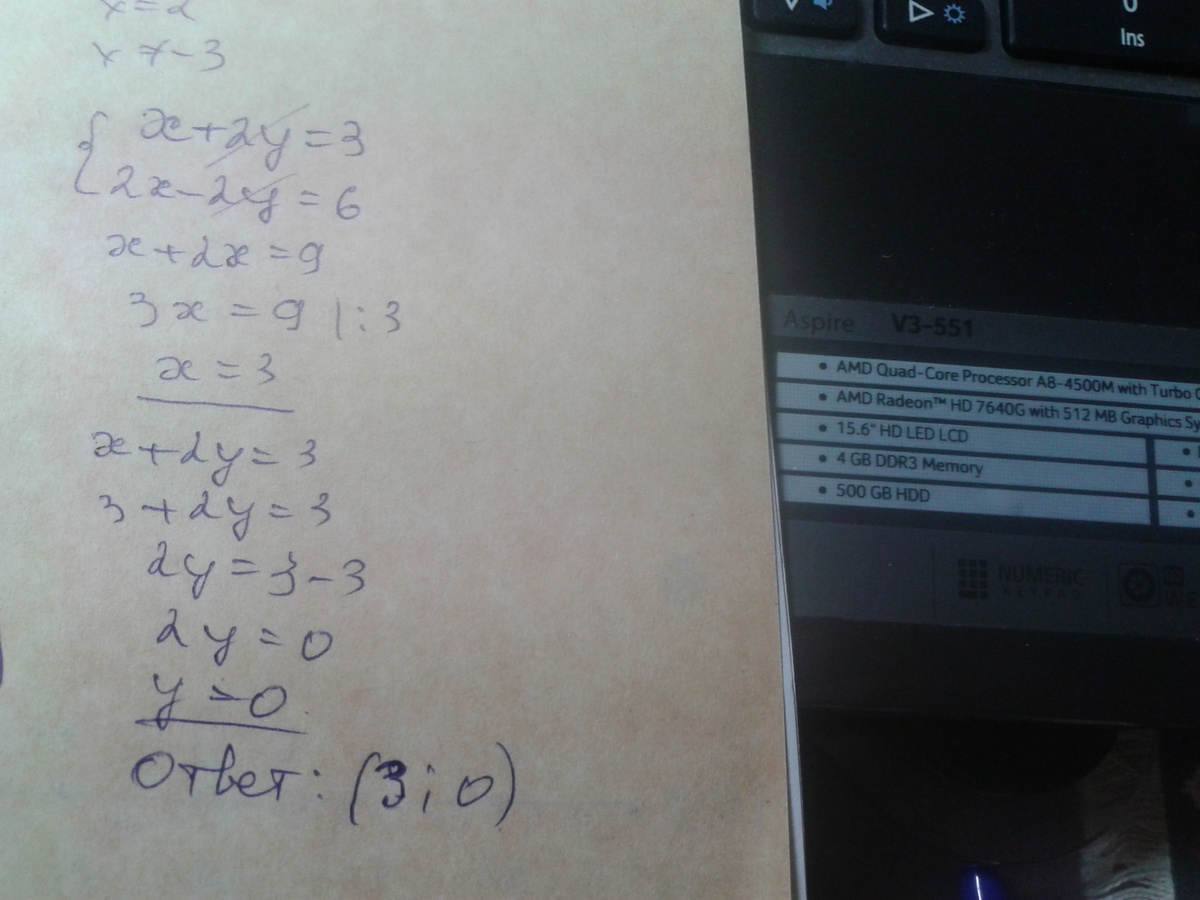 x = 2
x ≠ -3
{ x + 2y = 3
2x - 2y = 6
x + 2x = 9
3x = 9 | : 3
x = 3
x + 2y = 3
3 + 2y = 3
2y = 3 - 3
2y = 0
y = 0
Ответ: (3; 0)
0
Ins
Aspire V3-551
• AMD Quad-Core Processor A8-4500M with Turbo
• AMD Radeon™ HD 7640G with 512 MB Graphics Sy
• 15.6" HD LED LCD
• 4 GB DDR3 Memory
• 500 GB HDD
NUMERIC
KEYPAD